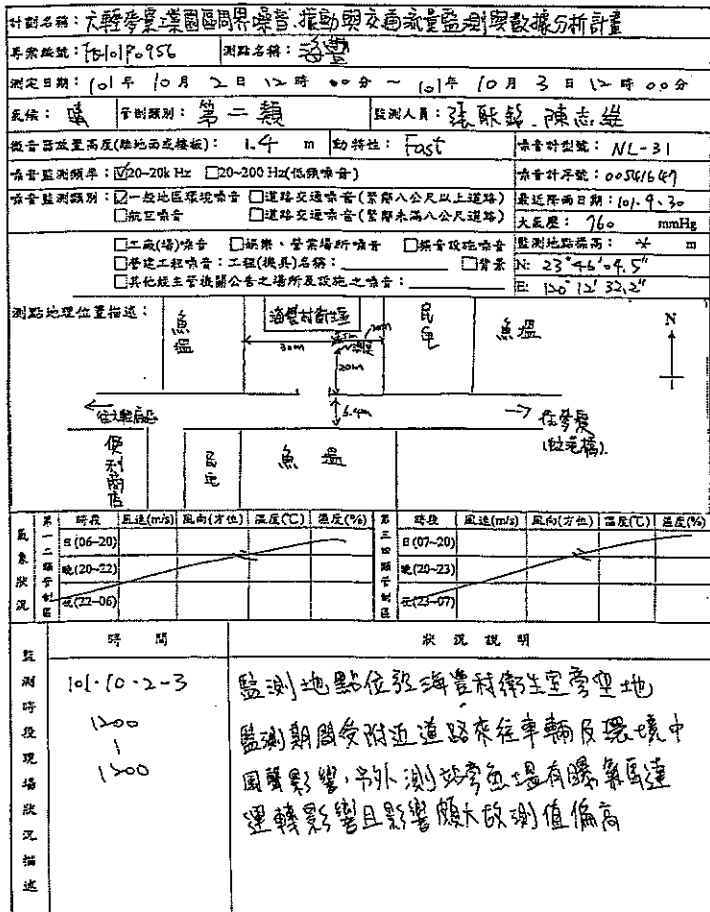 計劃名稱：六輕麥寮工業園區周界噪音、振動與交通流量監測與數據分析計畫
專案編號：FE101P0956 測點名稱：海豐
測定日期：101年 10月 2日 12時 00分 ～ 101年 10月 3日 12時 00分
氣候：晴 管制類別：第二類 監測人員：張耿銘、陳志
微音器放置高度(離地面或樓板)：1.4 m 動特性：Fast 噪音計型號：NL-31
噪音監測頻率：☑20~20k Hz □20~200 Hz(低頻噪音) 噪音計序號：00541647
噪音監測類別：☑一般地區環境噪音 □道路交通噪音(緊鄰八公尺以上道路) 最近降雨日期：101.9.30
□航空噪音 □道路交通噪音(緊鄰未滿八公尺道路) 大氣壓：760 mmHg
□工廠(場)噪音 □娛樂、營業場所噪音 □擴音設施噪音 監測地點標高： m
□營建工程噪音：工程(機具)名稱： □背景 N: 23°46'04.5"
□其他經主管機關公告之場所及設施之噪音： E: 120°12'32.2"
測點地理位置描述：
魚塭 海豐村衛生室 民宅 魚塭 N
30m 20m
6.4m
往六輕廠區 往麥寮
便利商店 民宅 魚塭
氣象狀況 第一二類管制區 時段 風速(m/s) 風向(方位) 溫度(℃) 濕度(%) 第三四類管制區 時段 風速(m/s) 風向(方位) 溫度(℃) 濕度(%)
日(06~20) 日(07~20)
晚(20~22) 晚(20~23)
夜(22~06) 夜(23~07)
監測時段現場狀況描述
時 間 狀 況 說 明
101.10.2-3 監測地點位於海豐村衛生室旁空地
1200 監測期間受附近道路來往車輛及環境中
1200 風聲影響，另外測站旁魚塭有曝氣馬達
運轉影響且影響頗大故測值偏高